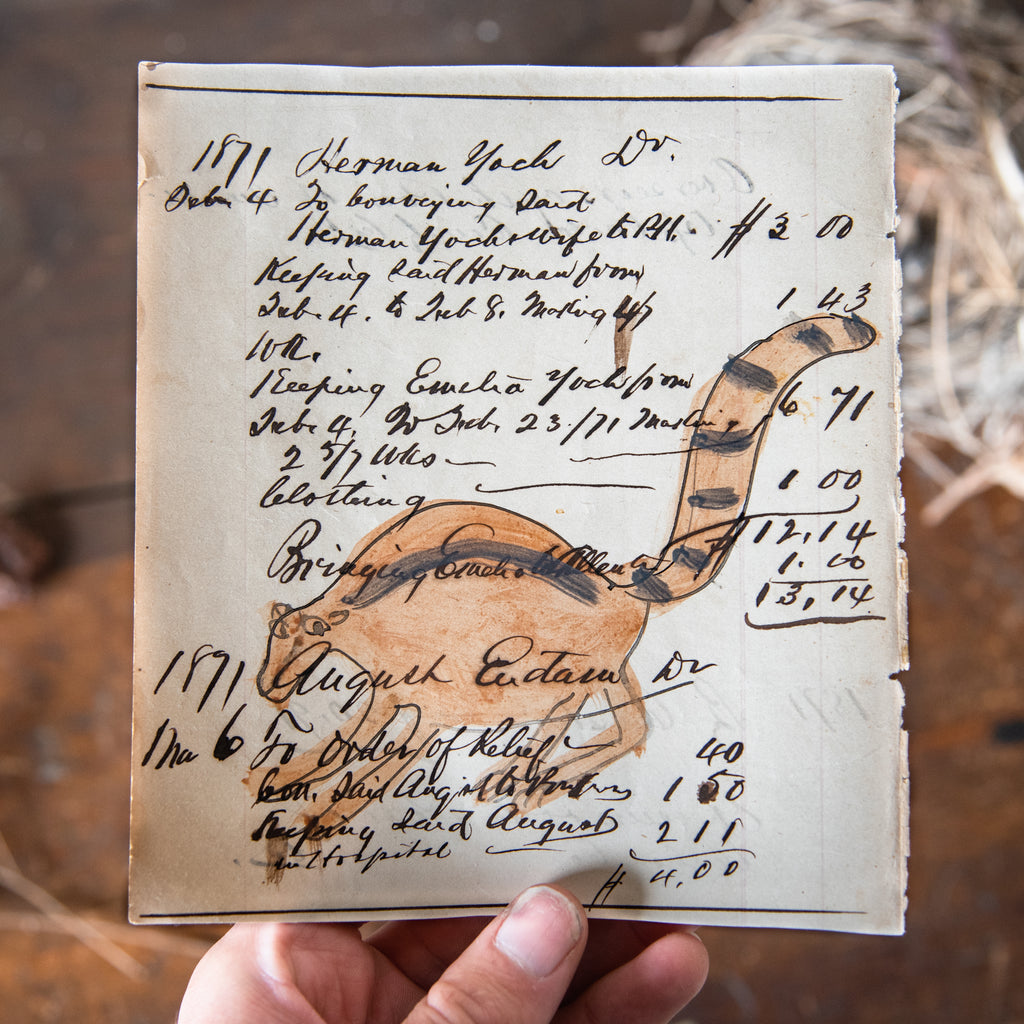 1871 Herman Yoch Dr.
Feb 4 To Conveying said
Herman Yoch & Wife to P.H. $ 3 00
Keeping said Herman from
Feb. 4. to Feb 8. Making 4/7 1 43
Wk.
Keeping Emelia Yoch from
Feb. 4. To Feb. 23/71 Making 6 71
2 5/7 Wks
Clothing 1 00
$ 12,14
Bringing Emelia 1.00
13,14
1871 August Dr
Ma 6 To Order of Relief 40
Con. said August to 1 50
Keeping said August 2 11
in Hospital
$ 4,00